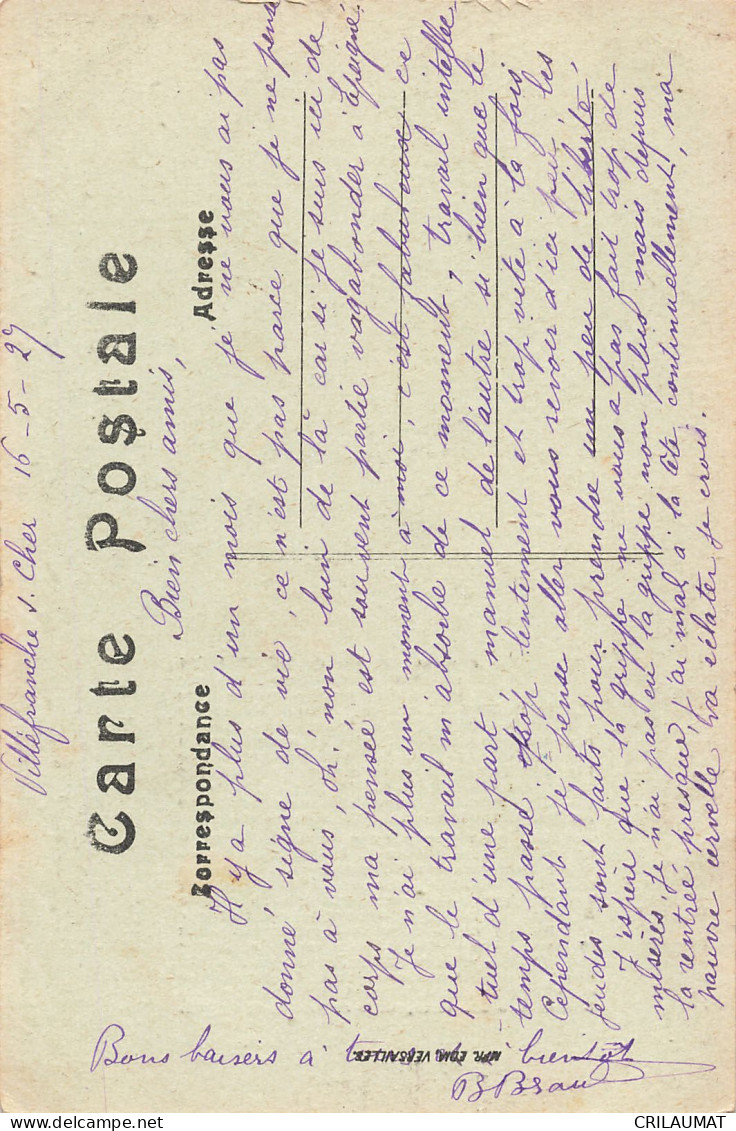 Villefranche s. Cher 16-5-27
Carte Postale
Bien chers amis,
Correspondance
Adresse
Il y a plus d'un mois que je ne vous ai pas
donné signe de vie, ce n'est pas parce que je ne pense
pas à vous, oh! non loin de là car si je suis ici de
corps ma pensée est souvent partie vagabonder à Epeigné.
Je n'ai plus un moment à moi, c'est fabuleux ce
que le travail m'absorbe de ce moment, travail intellec-
tuel d'une part, manuel de l'autre si bien que le
temps passe trop lentement et trop vite à la fois
Cependant je pense aller vous revoir d'ici peu, les
jeudis sont faits pour prendre un peu de liberté.
J'espère que la grippe ne vous a pas fait trop de
misères, je n'ai pas eu la grippe non plus mais depuis
la rentrée presque j'ai mal à la tête continuellement, ma
pauvre cervelle va éclater je crois.
Bons baisers à tous, à bientôt
IMP. EDIA. VERSAILLES
B Brau
CRILAUMAT